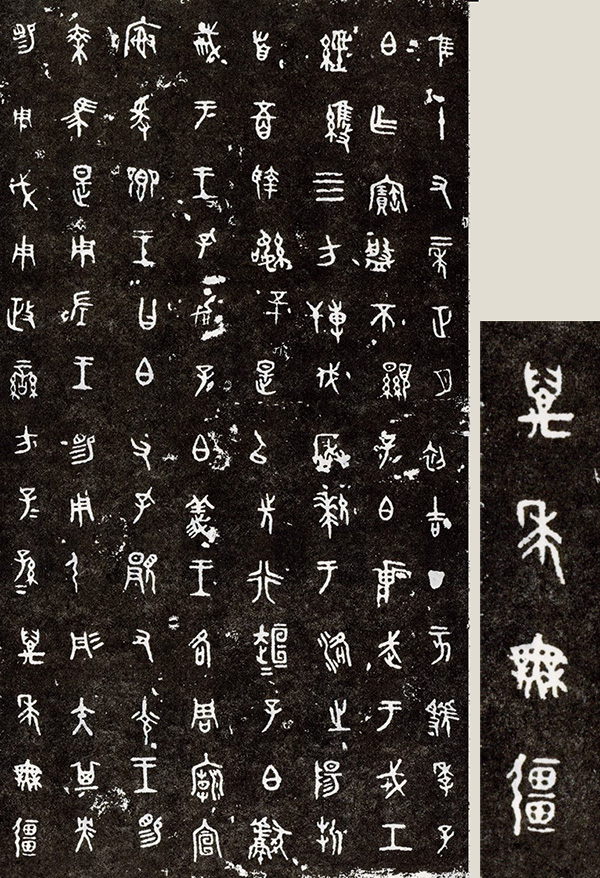 隹十又二年正月初吉丁亥虢季子
白乍寶盤不顯子白壯武于戎工
經維四方搏伐玁狁于洛之陽折
首五百執訊五十是以先行桓桓子白獻
馘于王王孔加子白義王各周廟宣
榭爰鄉王曰白父孔顯又光王賜
乘馬是用左王賜用弓彤矢其央
賜用戉用政蠻方子子孫孫萬年無疆
萬年無疆